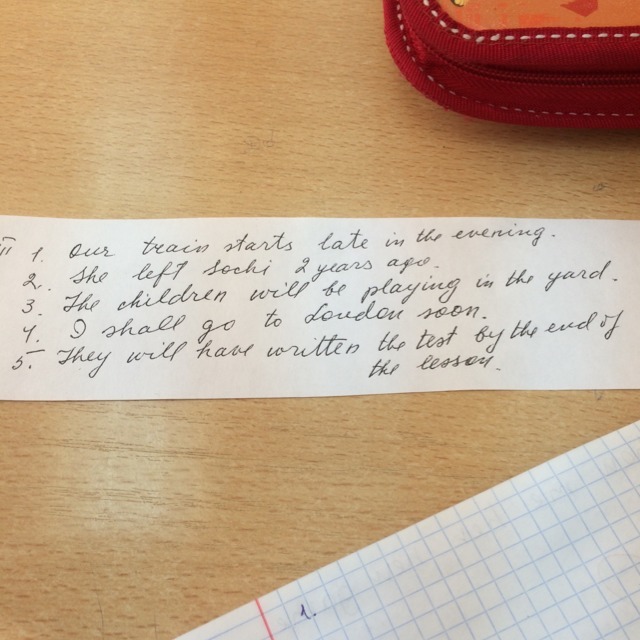 III 1. Our train starts late in the evening.
2. She left Sochi 2 years ago.
3. The children will be playing in the yard.
4. I shall go to London soon.
5. They will have written the test by the end of
the lesson.
1.